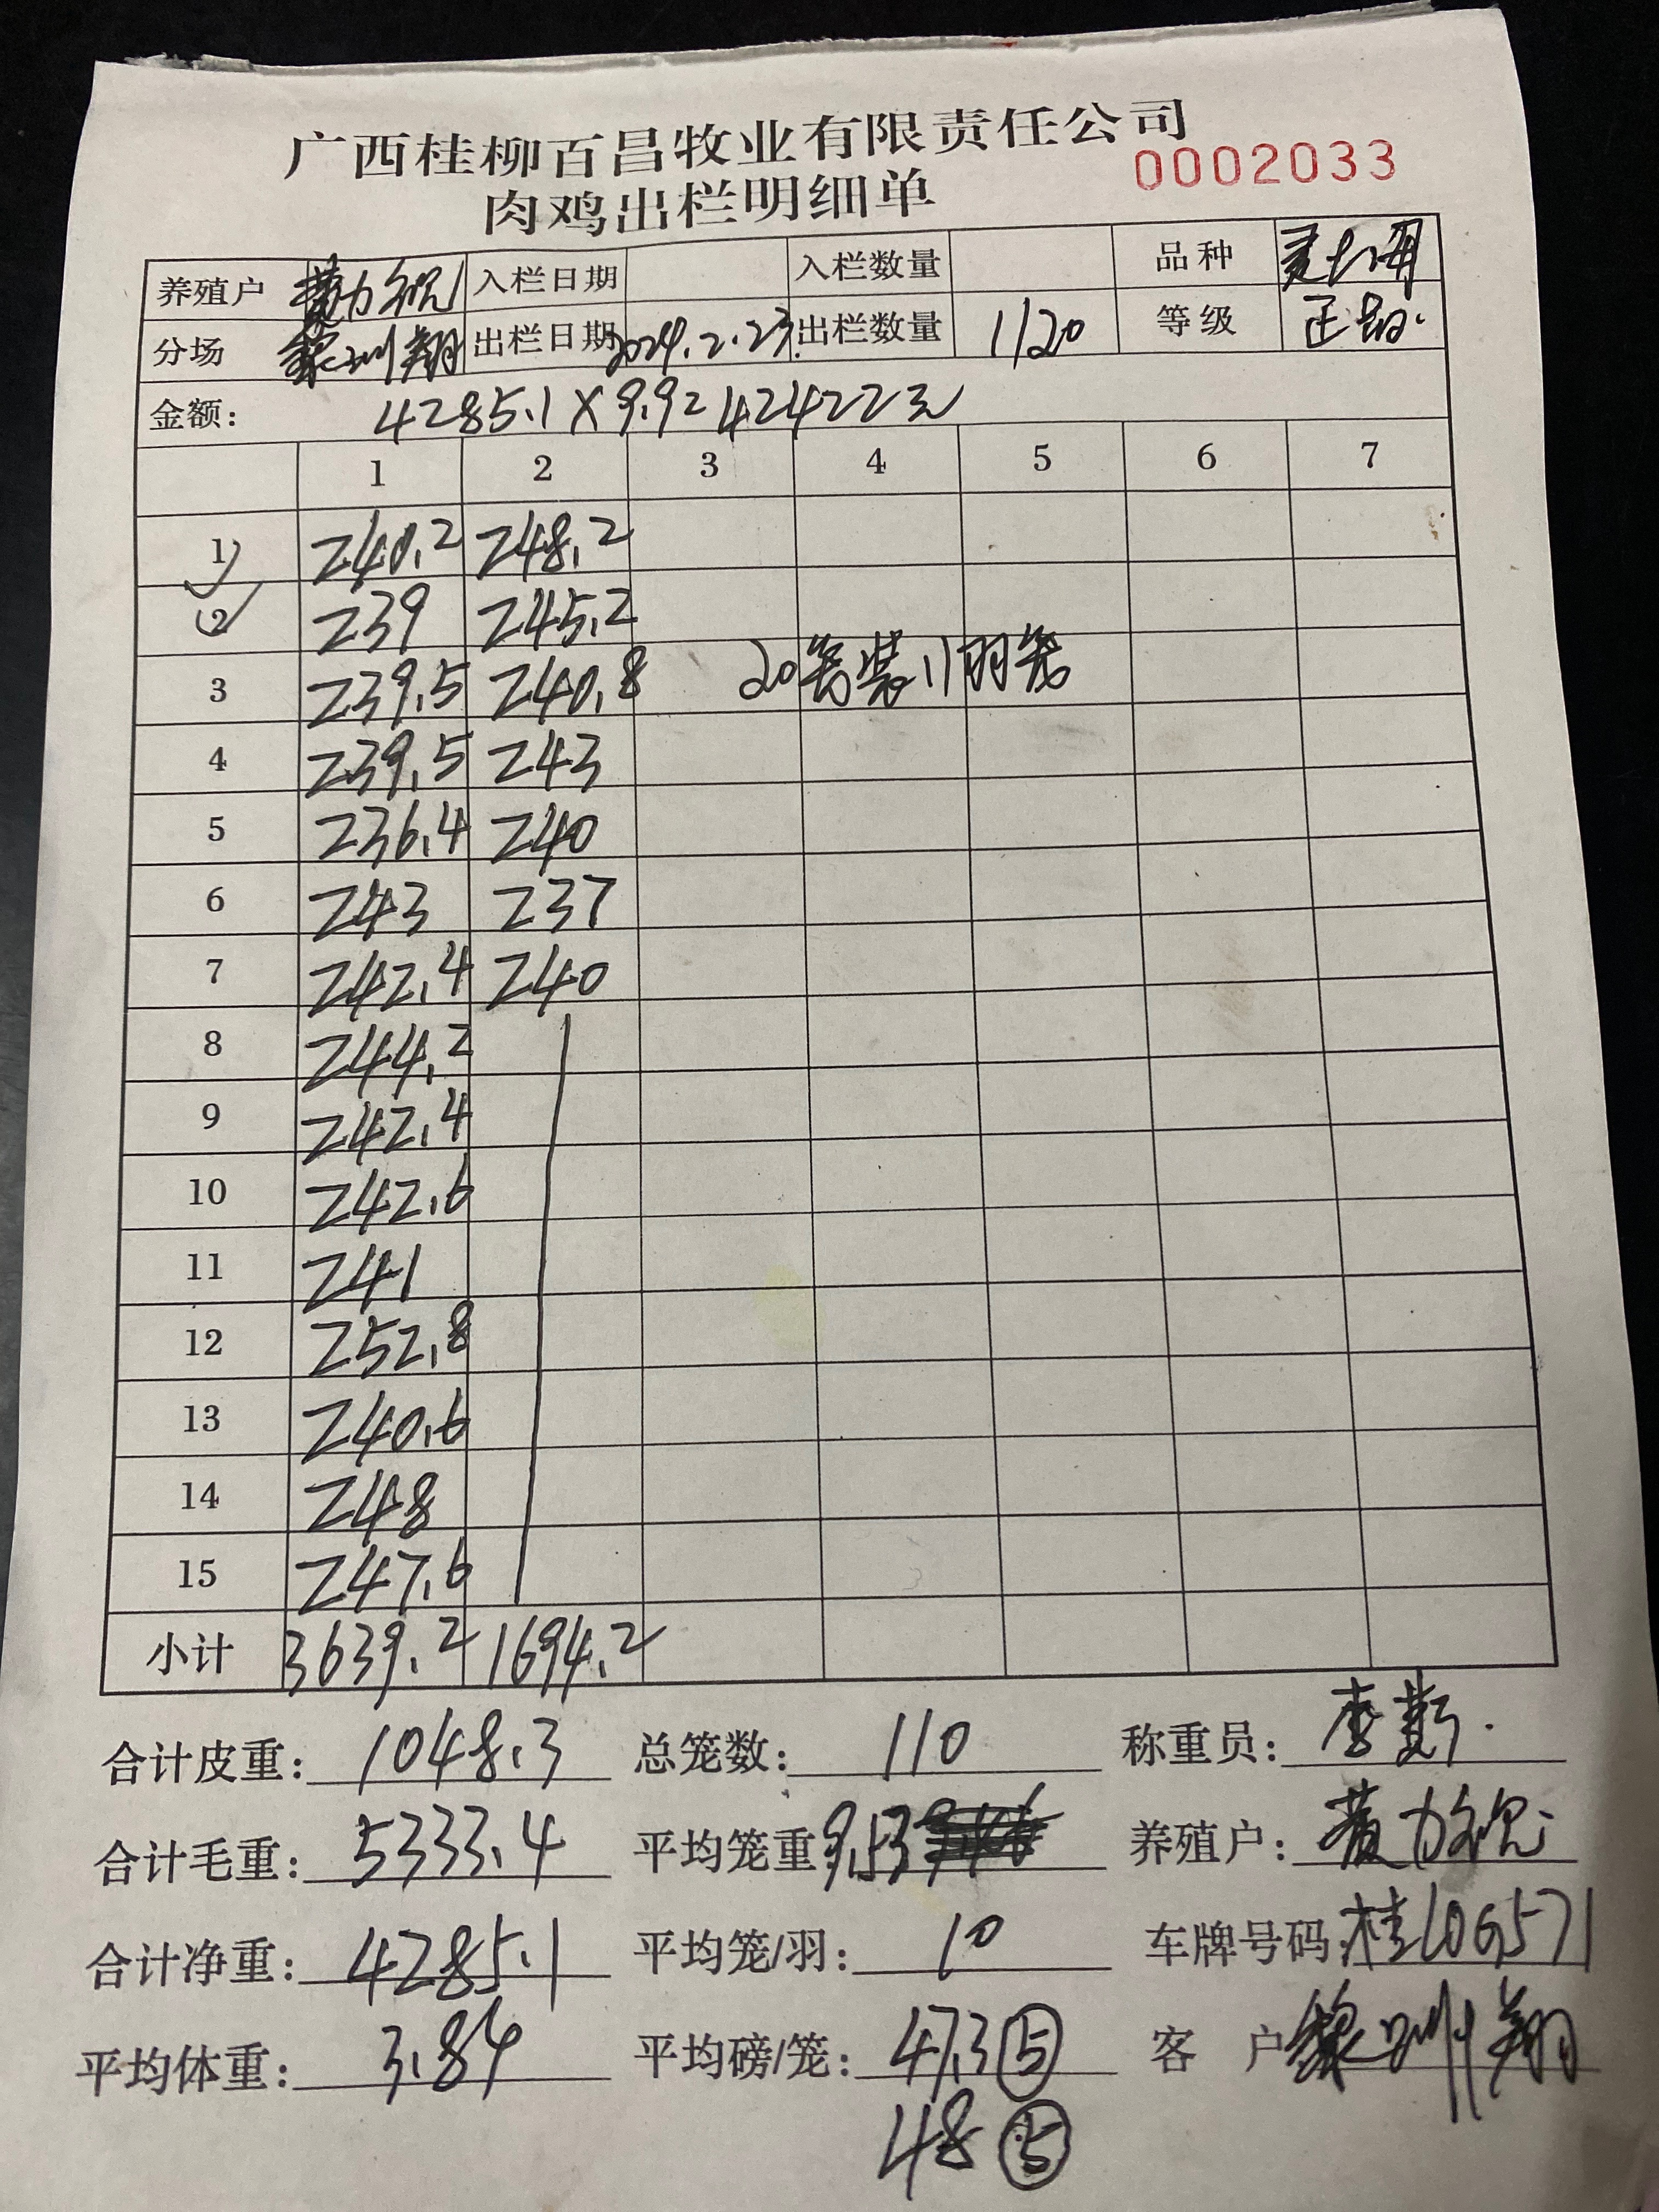 广西桂柳百昌牧业有限责任公司
0002033
肉鸡出栏明细单
养殖户 入栏日期 入栏数量 品种
分场 黎圳翔 出栏日期 2024.2.23. 出栏数量 1120 等级 正品.
金额: 4285.1×9.92 42422元
1 2 3 4 5 6 7
1 240.2 248.2
2 239 245.2
3 239.5 240.8 20笼装11羽笼
4 239.5 243
5 236.4 240
6 243 237
7 242.4 240
8 244.2
9 242.4
10 242.6
11 241
12 252.8
13 240.6
14 248
15 247.6
小计 3639.2 1694.2
合计皮重: 1048.3 总笼数: 110 称重员:
合计毛重: 5333.4 平均笼重: 9.53 养殖户:
合计净重: 4285.1 平均笼/羽: 10 车牌号码: 桂L0G571
平均体重: 3.84 平均磅/笼: 47.3⑤ 客 户 黎圳翔
48⑤